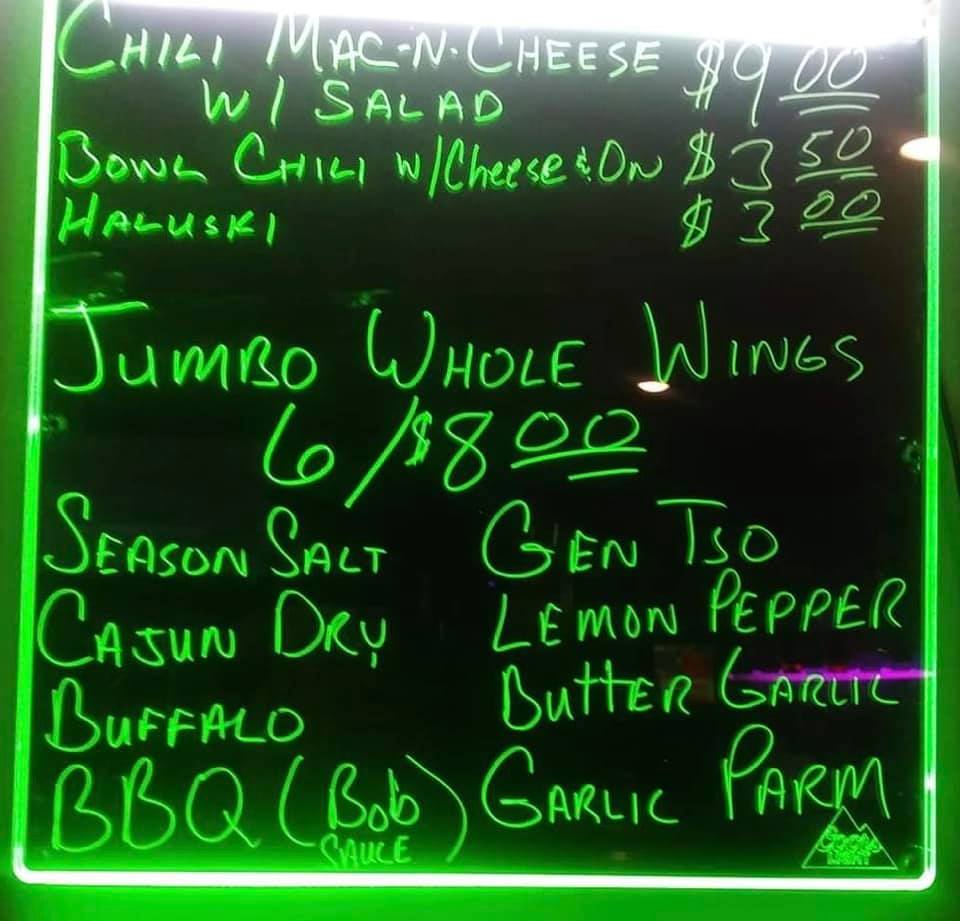 CHILI MAC-N-CHEESE $9 00
W/ SALAD
BOWL CHILI W/Cheese & ON $3 50
HALUSKI $3 00
JUMBO WHOLE WINGS
6/$8 00
SEASON SALT GEN TSO
CAJUN DRY LEMON PEPPER
BUFFALO BUTTER GARLIC
BBQ (Bob SAUCE) GARLIC PARM
Coors
LIGHT